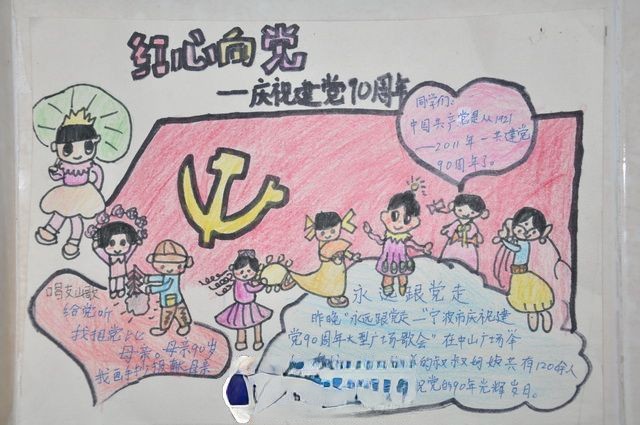 红心向党
——庆祝建党90周年
同学们：
中国共产党是从1921
——2011年一共建党
90周年了。
唱支山歌
给党听
我把党比
母亲。母亲90岁
我画手抄报献母亲
永远跟党走
昨晚“永远跟党走——宁波市庆祝建
党90周年大型广场歌会”在中山广场举
的叔叔阿姨共有120余人
祝党的90年光辉岁月。